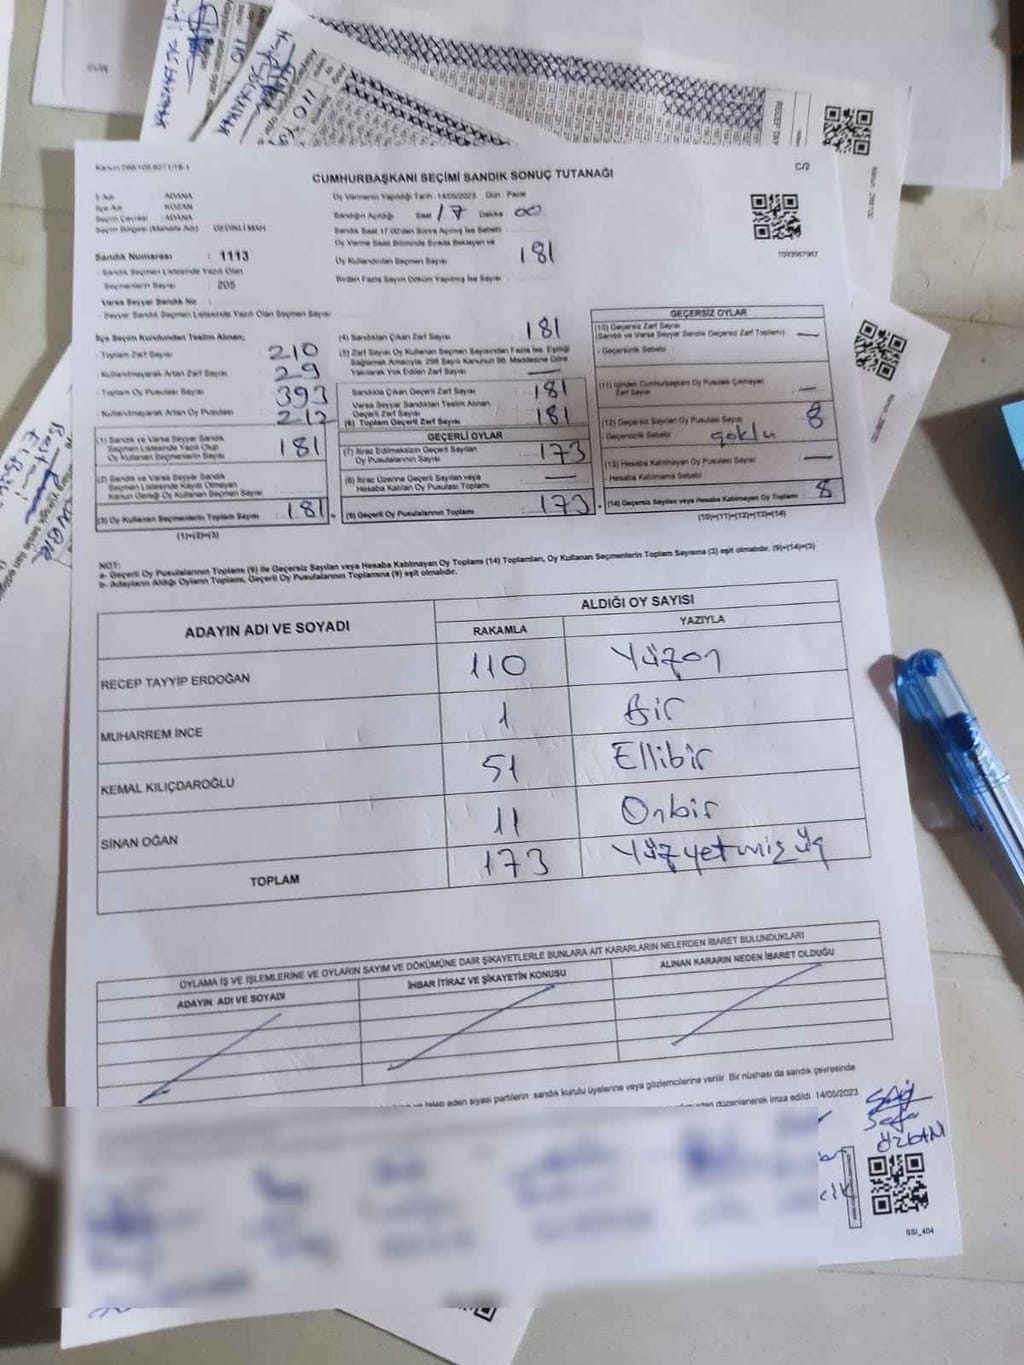 CUMHURBAŞKANI SEÇİMİ SANDIK SONUÇ TUTANAĞI
C/2
İl Adı : ADANA
İlçe Adı : KOZAN
Seçim Çevresi : ADANA
Seçim Bölgesi (Mahalle Adı) :
Sandık Numarası : 1113
Sandık Seçmen Listesinde Yazılı Olan
Seçmenlerin Sayısı : 205
Varsa Seyyar Sandık No :
Seyyar Sandık Seçmen Listesinde Yazılı Olan Seçmen Sayısı :
Oy Vermenin Yapıldığı Tarih : 14/05/2023 Gün : Pazar
Sandığın Açıldığı Saat 17 Dakika 00
Sandık Saat 17:00'den Sonra Açılmış İse Sebebi
Oy Verme Saati Bitiminde Sırada Bekleyen ve
Oy Kullandırılan Seçmen Sayısı 181
Birden Fazla Sayım Döküm Yapılmış İse Sayısı
1093567967
İlçe Seçim Kurulundan Teslim Alınan;
- Toplam Zarf Sayısı 210
- Kullanılmayarak Artan Zarf Sayısı 29
- Toplam Oy Pusulası Sayısı 393
- Kullanılmayarak Artan Oy Pusulası 212
(1) Sandık ve Varsa Seyyar Sandık
Seçmen Listesinde Yazılı Olup
Oy Kullanan Seçmenlerin Sayısı 181
(2) Sandık ve Varsa Seyyar Sandık
Seçmen Listesinde Kaydı Olmayan
Kanun Gereği Oy Kullanan Seçmen Sayısı
(3) Oy Kullanan Seçmenlerin Toplam Sayısı 181
(1)+(2)=(3)
(4) Sandıktan Çıkan Zarf Sayısı 181
(5) Zarf Sayısı Oy Kullanan Seçmen Sayısından Fazla İse, Eşitliği
Sağlamak Amacıyla, 298 Sayılı Kanunun 98. Maddesine Göre
Yakılarak Yok Edilen Zarf Sayısı —
Sandıkta Çıkan Geçerli Zarf Sayısı 181
Varsa Seyyar Sandıktan Teslim Alınan
Geçerli Zarf Sayısı
(6) Toplam Geçerli Zarf Sayısı 181
GEÇERLİ OYLAR
(7) İtiraz Edilmeksizin Geçerli Sayılan
Oy Pusulalarının Sayısı 173
(8) İtiraz Üzerine Geçerli Sayılan veya
Hesaba Katılan Oy Pusulası Toplamı —
(9) Geçerli Oy Pusulalarının Toplamı 173
GEÇERSİZ OYLAR
(10) Geçersiz Zarf Sayısı
(Sandık ve Varsa Seyyar Sandık Geçersiz Zarf Toplamı) —
- Geçersizlik Sebebi
(11) İçinden Cumhurbaşkanı Oy Pusulası Çıkmayan
Zarf Sayısı —
(12) Geçersiz Sayılan Oy Pusulası Sayısı 8
- Geçersizlik Sebebi
(13) Hesaba Katılmayan Oy Pusulası Sayısı —
- Hesaba Katılmama Sebebi
(14) Geçersiz Sayılan veya Hesaba Katılmayan Oy Toplamı 8
(10)+(11)+(12)+(13)=(14)
NOT:
a- Geçerli Oy Pusulalarının Toplamı (9) ile Geçersiz Sayılan veya Hesaba Katılmayan Oy Toplamı (14) Toplamları, Oy Kullanan Seçmenlerin Toplam Sayısına (3) eşit olmalıdır. (9)+(14)=(3)
b- Adayların Aldığı Oyların Toplamı, Geçerli Oy Pusulalarının Toplamına (9) eşit olmalıdır.
ADAYIN ADI VE SOYADI ALDIĞI OY SAYISI
RAKAMLA YAZIYLA
RECEP TAYYİP ERDOĞAN 110 Yüzon
MUHARREM İNCE 1 Bir
KEMAL KILIÇDAROĞLU 51 Ellibir
SİNAN OĞAN 11 Onbir
TOPLAM 173 Yüzyetmişüç
OYLAMA İŞ VE İŞLEMLERİNE VE OYLARIN SAYIM VE DÖKÜMÜNE DAİR ŞİKAYETLERLE BUNLARA AİT KARARLARIN NELERDEN İBARET BULUNDUKLARI
ADAYIN ADI VE SOYADI İHBAR İTİRAZ VE ŞİKAYETİN KONUSU ALINAN KARARIN NEDEN İBARET OLDUĞU
talep eden siyasi partilerin sandık kurulu üyelerine veya gözlemcilerine verilir. Bir nüshası da sandık çevresinde
düzenlenerek imza edildi. 14/05/2023
SSI_404